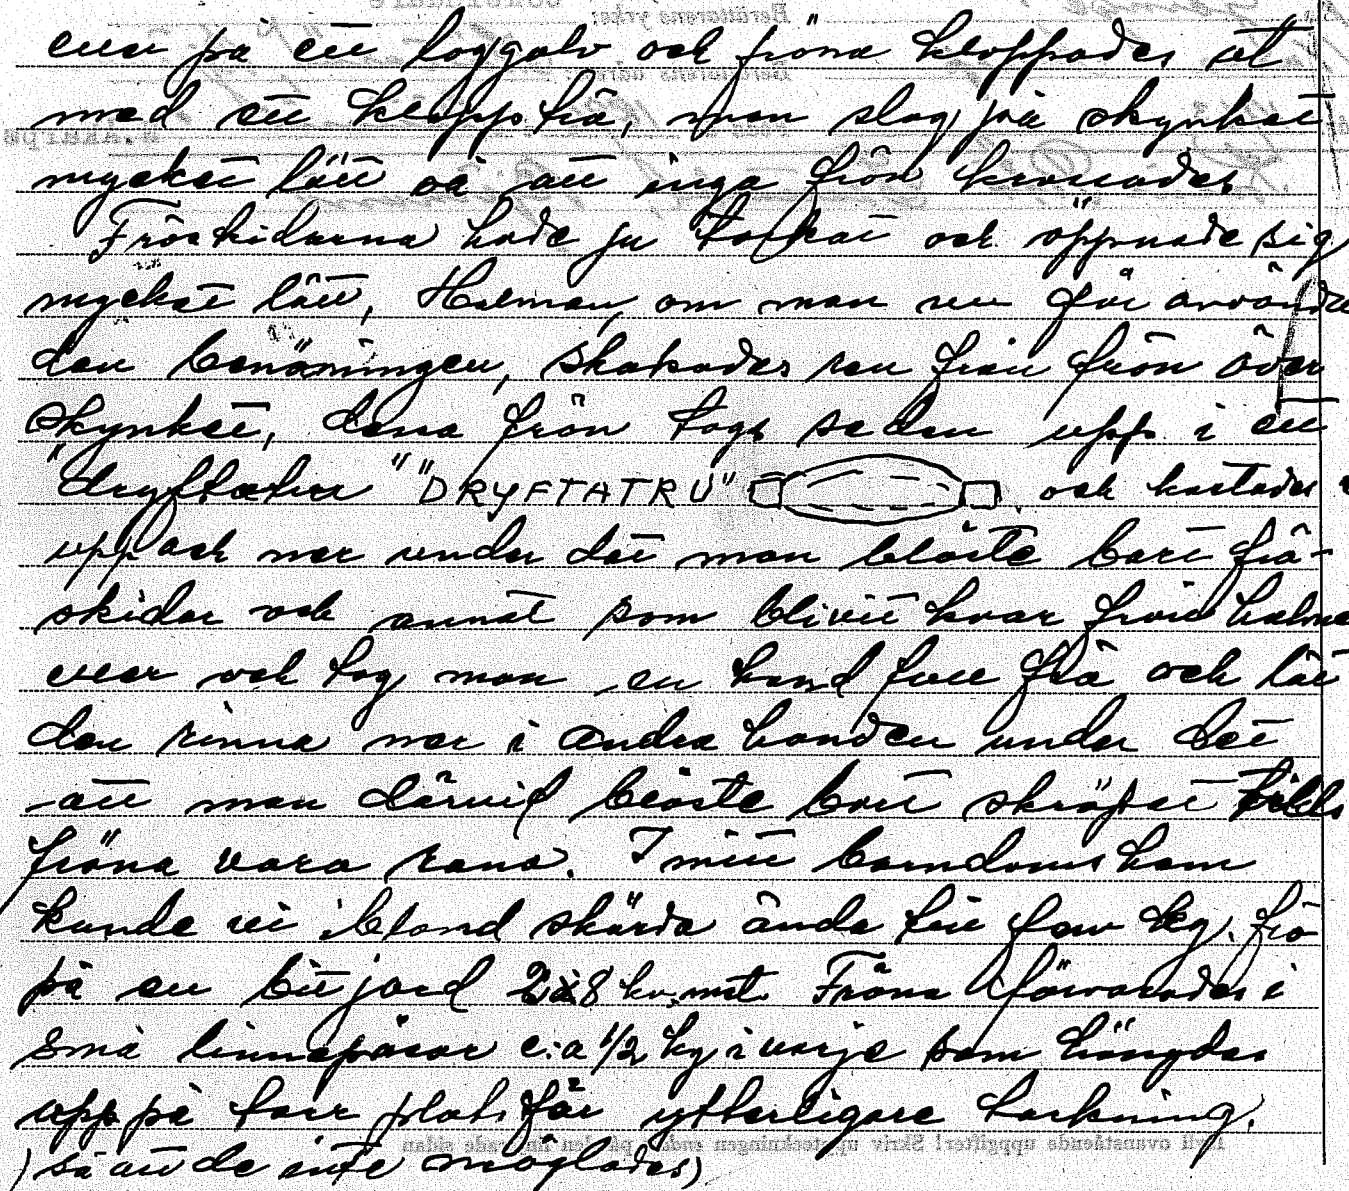 eller på ett loggolv och fröna kloppades ut
med ett klappträ, man slog på skynket
mycket lätt så att inga frön krossades
Fröskidorna hade ju torkat och öppnade sig
mycket lätt, Halmen, om man nu får använda
den benämningen, skakades ren från frön över
skynket, dessa frön togs sedan upp i ett
"dryftatru "DRYFTATRU" och kastades
upp och ner under det man blåste bort frö-
skidor och annat som blivit kvar från halmen
eller och tog man en hand full frö och lät
den rinna ner i andra handen under det
att man därvid blåste bort skräpet tills
fröna voro rena. I mitt barndomshem
kunde vi ibland skörda ända till fem kg. frö
på en bit jord 2x8 kv.met. Fröna förvarades i
små linnepåsar c:a 1/2 kg i varje som hängdes
upp på torr plats för ytterligare torkning.
(så att de inte möglades)